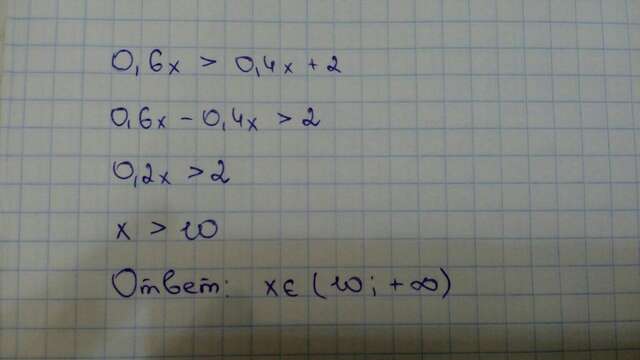 0,6x > 0,4x + 2
0,6x - 0,4x > 2
0,2x > 2
x > 10
Ответ: x∈(10; +∞)